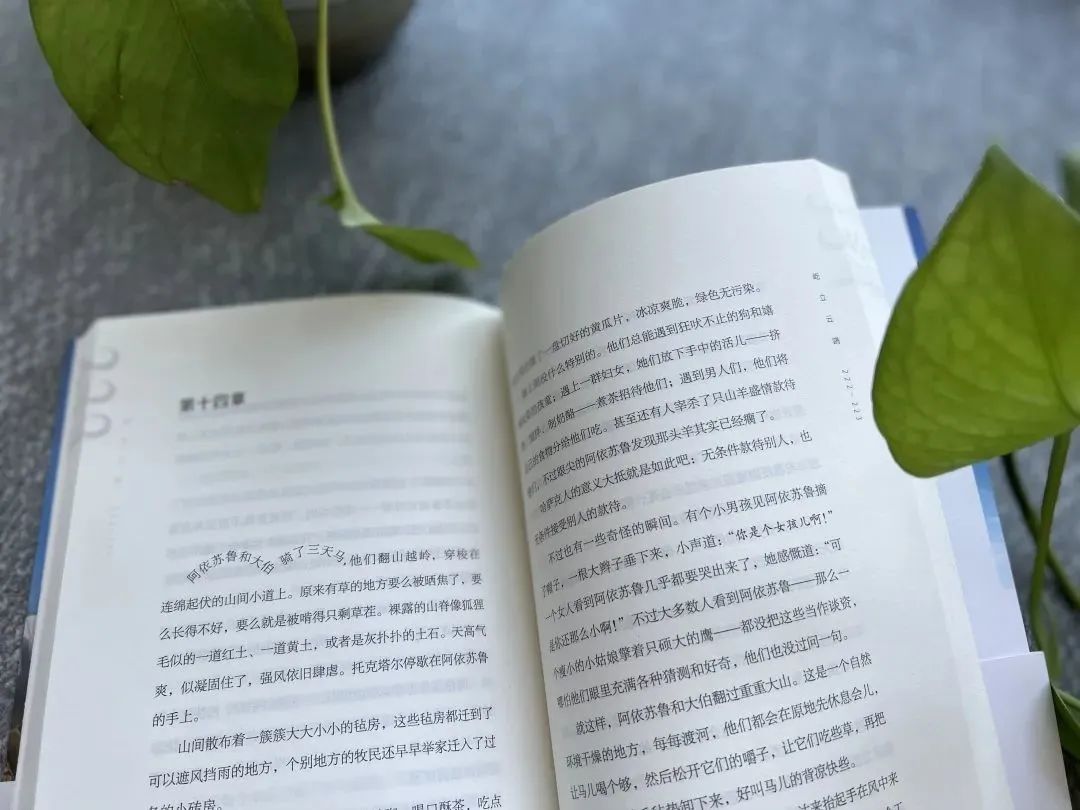 第十四章
阿依苏鲁和大伯骑了三天马,他们翻山越岭，穿梭在
连绵起伏的山间小道上。原来有草的地方要么被晒焦了，要
么长得不好，要么就是被啃得只剩草茬。裸露的山脊像狐狸
毛似的一道红土、一道黄土，或者是灰扑扑的土石。天高气
爽，似凝固住了，强风依旧肆虐。托克塔尔停歇在阿依苏鲁
的手上。
山间散布着一簇簇大大小小的毡房，这些毡房都迁到了
可以遮风挡雨的地方，个别地方的牧民还早早举家迁入了过
冬的小砖房。
喝口酥茶，吃点
了一盘切好的黄瓜片，冰凉爽脆，绿色无污染。
没什么特别的。他们总能遇到狂吠不止的狗和嬉
的孩童；遇上一群妇女，她们放下手中的活儿——挤
制奶酪——煮茶招待他们；遇到男人们，他们将
的食物分给他们吃。甚至还有人宰杀了只山羊盛情款待
他们，不过眼尖的阿依苏鲁发现那头羊其实已经瘸了。
哈萨克人的意义大抵就是如此吧：无条件款待别人，也
无条件接受别人的款待。
不过也有一些奇怪的瞬间。有个小男孩见阿依苏鲁摘
了帽子，一根大辫子垂下来，小声道：“你是个女孩儿啊！”
一个女人看到阿依苏鲁几乎都要哭出来了，她感慨道：“可
是你还那么小啊！”不过大多数人看到阿依苏鲁——那么一
个瘦小的小姑娘擎着只硕大的鹰——都没把这些当作谈资，
哪怕他们眼里充满各种猜测和好奇，他们也没过问一句。
就这样，阿依苏鲁和大伯翻过重重大山。这是一个自然
环境干燥的地方，每每渡河，他们都会在原地先休息会儿，
让马儿喝个够，然后松开它们的嚼子，让它们吃些草，再把
垫卸下来，好叫马儿的背凉快些。
抬起手在风中来
屹立云端
222-223